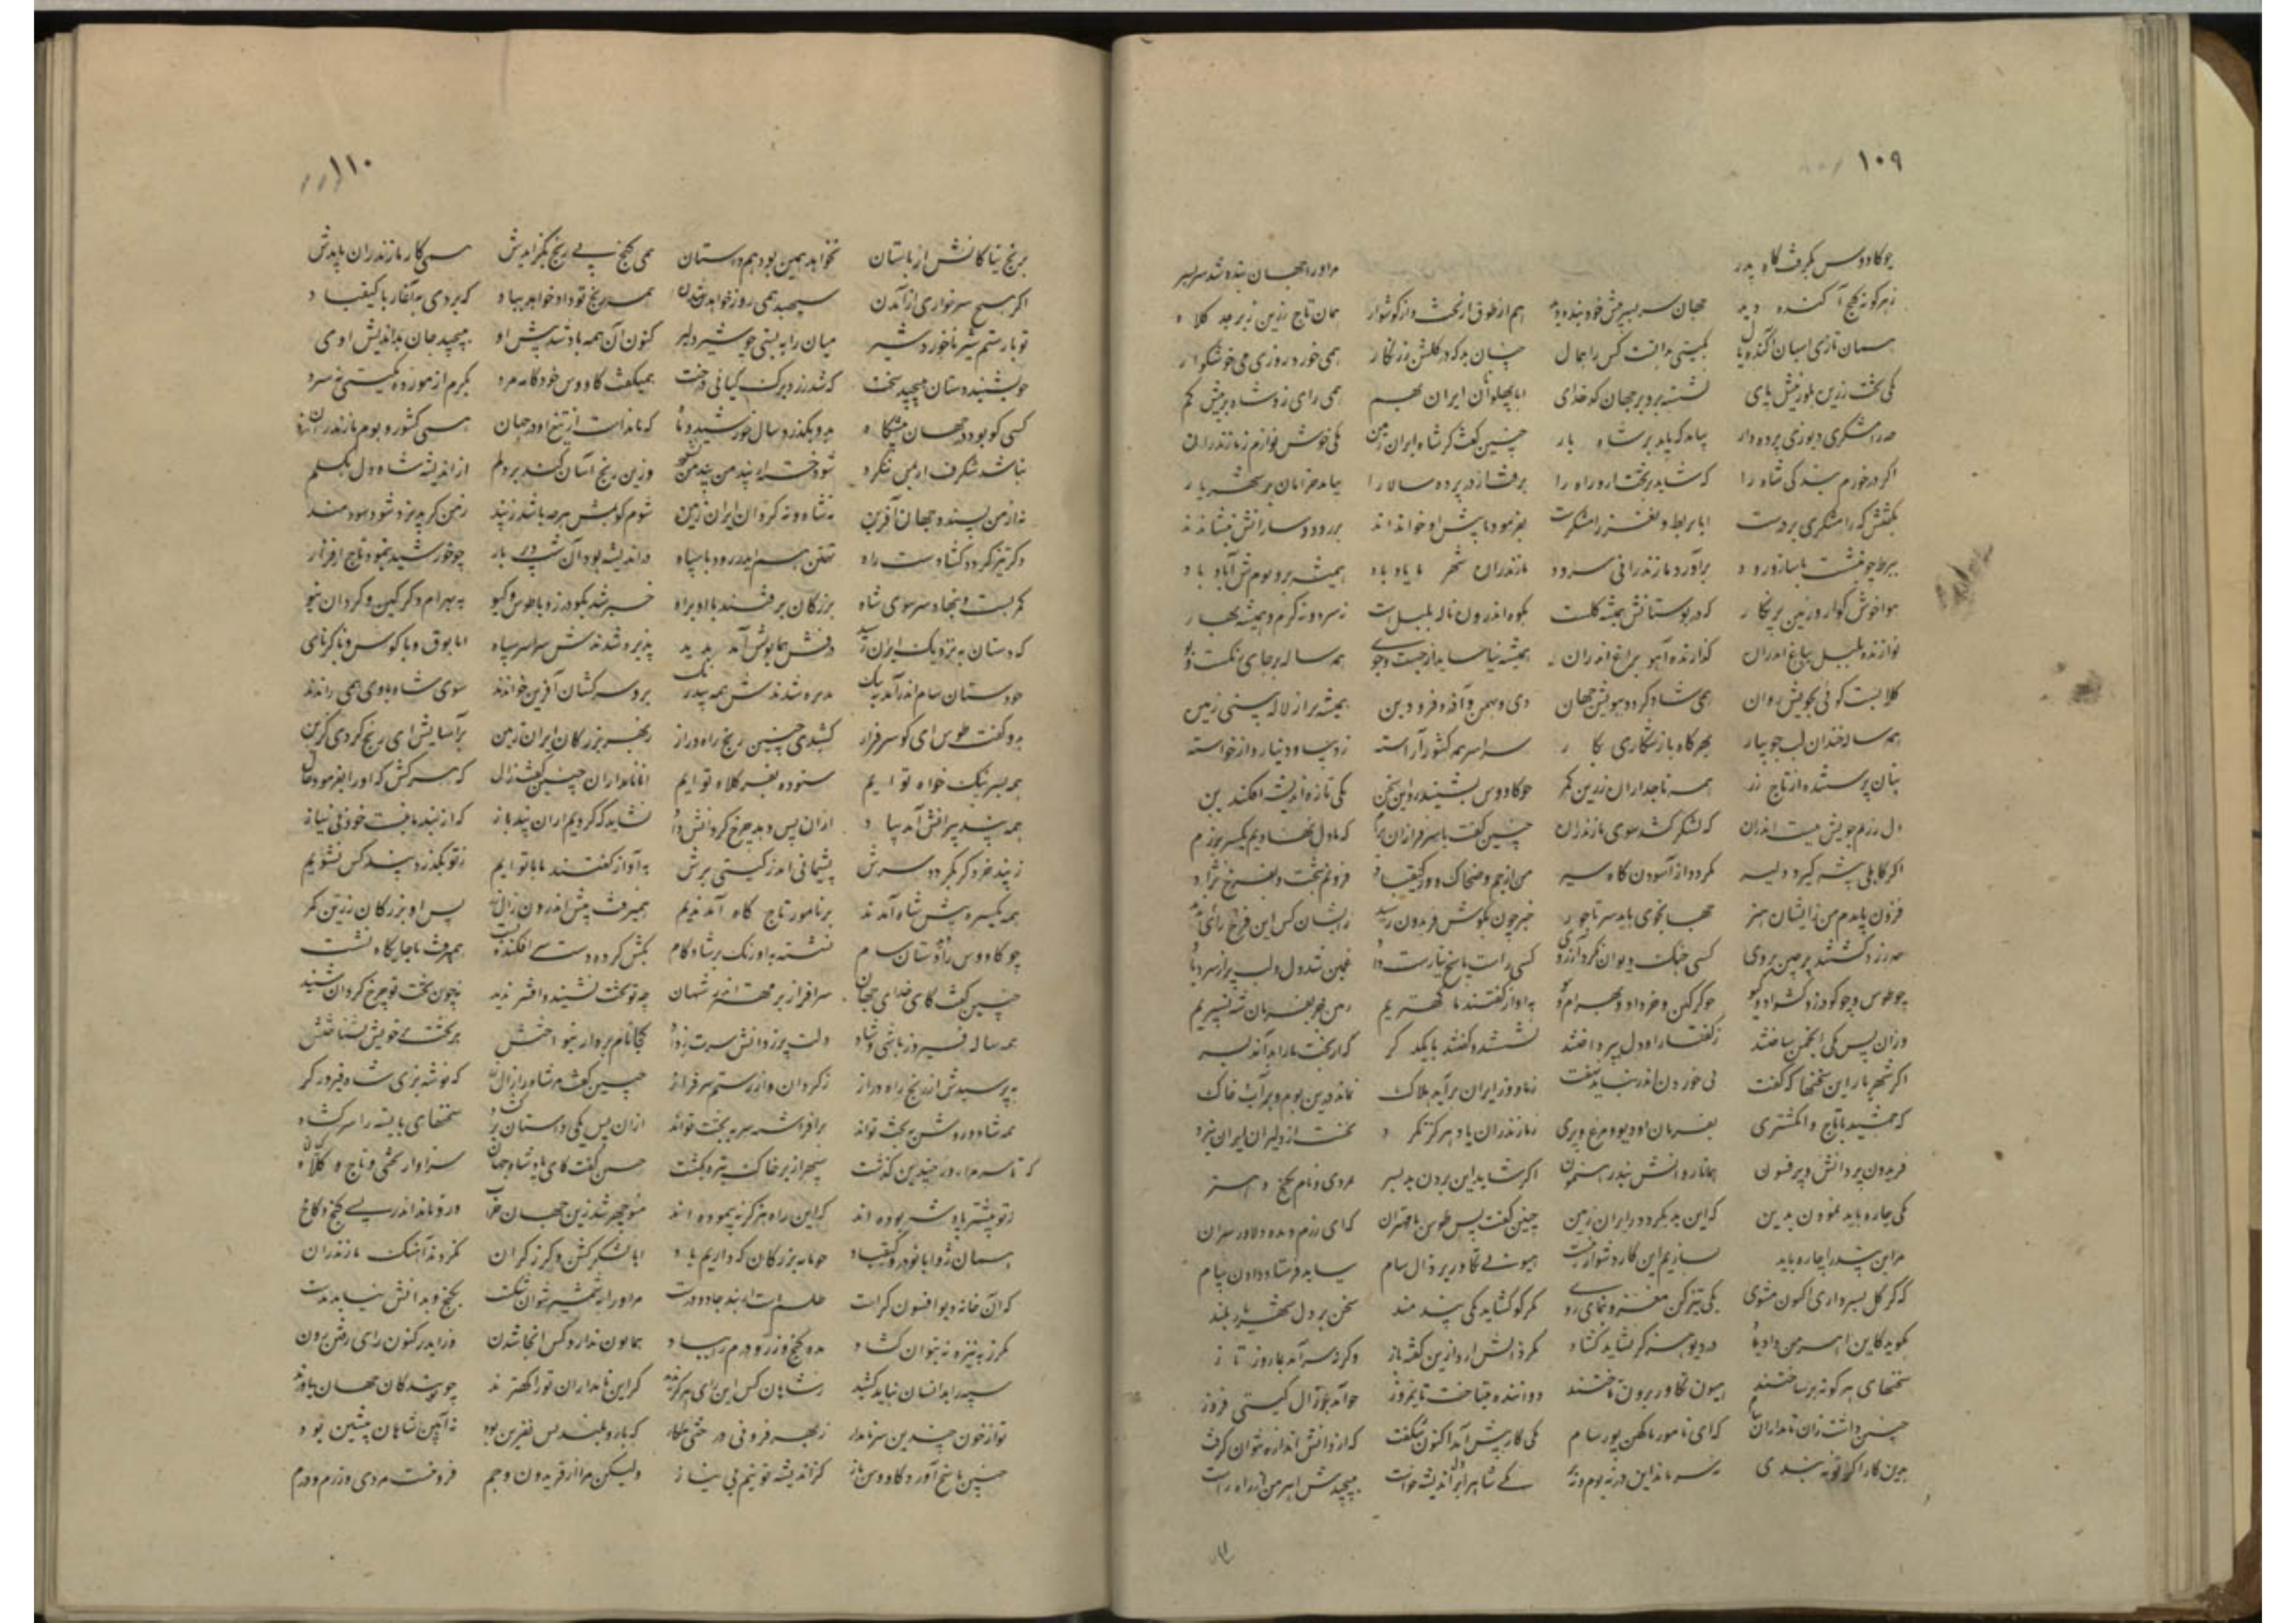 ۱۰۹
چو کاووس بگرفت گاه پدر مراورا جهان بنده شد سربسر
زهر کونه کنج آکنده دید جهان سر بسر پیش خود بنده دید هم از طوق و از تخت و از کوشوار همان تاج زرین زبرجد کلاه
همان تازی اسبان آکنده یال بکیتی ندانست کس را همال چنان بد که در کلشن زرنکار همی خورد روزی می خوشکوار
یکی تخت زرین بلورینش پای نشسته برو بر جهان کدخدای ابا پهلوانان ایران بهم همی رای زد شاه بر بیش و کم
چو رامشکری دیو زی پرده دار بیامد که باید بر شاه بار چنین کفت کز شاه ایران زمین یکی خوش نوازم ز مازندران
اکر در خورم بندکی شاه را که شاید بر تخت او راه را برفت از در پرده سالار بار بیامد خرامان بر شهریار
بکفتش که رامشکری بر درست ابا بربط و نغز رامشکرست بفرمود تا پیش او خواندند بر رود سازانش بنشاندند
ببربط چو بایست بر ساز رود برآورد مازندرانی سرود که مازندران شهر ما یاد باد همیشه بر و بومش آباد باد
هوا خوش کوار و زمین پر نکار که در بوستانش همیشه کلست بکوه اندرون لاله و سنبلست نه سرد و نه کرم و همیشه بهار
نوازنده بلبل بباغ اندرون کرازنده آهو براغ اندرون همیشه نیاساید از جست و جوی همه ساله هر جای رنکست و بوی
کلابست کوئی بجویش روان همی شاد کردد ببویش جهان دی و بهمن و آذر و فرودین همیشه پر از لاله بینی زمین
همه ساله خندان لب جویبار بهر کاه باز شکاری بکار سراسر همه کشور آراسته ز دیبا و دینار و از خواسته
بتان پرستنده از تاج زر همه تاجداران زرین کمر چو کاووس بشنید ازو این سخن یکی تازه اندیشه افکند بن
دل رزم جویش ببست اندران که لشکر کشد سوی مازندران چنین کفت با سرفرازان رزم که ما دل نهادیم یکسر ببزم
اکر کاهلی پیشه کیرد دلیر نکردد از آسودن کاه سیر من از جم و ضحاک و از کیقباد فزونم ببخت و بفر و نژاد
فزون بایدم من زایشان هنر جهانجوی باید سر تاجور سخن چون بکوش بزرکان رسید ازیشان کس این فرخ رای ندید
همه زرد کشتند پرچین بروی کسی جنک دیوان نکرد آرزوی کسی راست پاسخ نیارست داد غمین شد دل و لب پر از سرد باد
چو طوس و چو کودرز کشواد و کیو چو کرکین و خراد و بهرام نیو باواز کفتند ما کهتریم زمین جز بفرمان تو نسپریم
وزان پس یکی انجمن ساختند ز کفتار او دل بپرداختند نشستند و کفتند با یکدکر که از بخت ما را چه آمد بسر
اکر شهریار این سخنها که کفت بمی خوردن اندر نباید نهفت ز ما و ز ایران برآید هلاک نماند برین بوم و بر آب خاک
که جمشید با تاج و انکشتری بفرمان او دیو و مرغ و پری ز مازندران یاد هرکز نکرد نجست از دلیران ایران نبرد
فریدون پر دانش و پر فسون همانا روانش نبد رهنمون اکر شاید این بردن بد بسر بمردی و نام کنج و هنر
یکی چاره باید نمودن بدین که این بد بکردد ز ایران زمین چنین کفت پس طوس با مهتران که ای رزم دیده دلاور سران
مر این بند را چاره باید بسازیم این کار دشوار نیست هیونی تکاور بر زال سام بباید فرستاد و دادن پیام
که کر کل بسر داری اکنون مشوی یکی تیز کن مغز و بنمای روی مکر کو کشاید یکی پند مند سخن بر دل شهریار بلند
بکوید که این اهرمن داد یاد در دیو هرکز نباید کشاد مکر زالش آرد ازین کفته باز وکرنه سر آمد بما روز ناز
سخنهای هر کونه بر ساختند هیون تکاور برون تاختند دوانده همی تاخت تا نیمروز چو آمد بر زال کیتی فروز
چنین داشت زان نامداران پیام که ای نامور با کهن پور سام یکی کار پیش آمد اکنون شکفت که از دانش اندازه نتوان کرفت
برین کار اکر تو نبندی نه سر ماند ایدر نه بوم و نه یکی شاه را بر دل اندیشه خواست بپیچیدش اهرمن از راه راست
۱۱۰
برنج نیاکانش از باستان نخواهد همین بود همداستان همی کنج بی رنج بکزایدش همی کار مازندران بایدش
اکر هیچ سرخاری از آمدن سپهبد همی زود خواهد شدن همه رنج تو داد خواهد بباد که بردی به آغاز با کیقباد
تو با رستم شیر ناخورده شیر میان را ببستی چو شیر دلیر کنون آن همه باد شد پیش او بپیچید جان بداندیش اوی
چو بشنید دستان بپیچید سخت که شد زرد برک کیانی درخت همیکفت کاووس خودکامه مرد نه کرم آزموده ز کیتی نه سرد
کسی کو بود در جهان پیشکاه برو بکذرد سال خورشید و ماه که ماندست از تیغ او در جهان همی کشور و بوم مازندران
نباشد شکفت ار بمن ننکرد شود خسته از پند من نشنود وزین رنج آسان کنم بر دلم از اندیشه شاه دل بکسلم
نه از من پسندد جهان آفرین نه شاه و نه کردان ایران زمین شوم کویمش هر چه باشد ز پند ز من کر پذیرد شود سودمند
وکر تیز کردد کشادست راه تهمتن هم ایدر بود با سپاه در اندیشه بود آن شب دیر باز چو خورشید بنمود تاج از فراز
کمر بست و بنهاد سر سوی شاه بزرکان برفتند با او براه خبر شد بکودرز و با طوس و کیو به بهرام و کرکین و کردان نیو
که دستان به نزدیک ایران رسید درفش همایونش آمد پدید پذیره شدندش سراسر سپاه ابا بوق و با کوس و با کرنای
چو دستان سام اندر آمد به تنک پذیره شدندش همه برو سرکشان آفرین خواندند سوی شاه با وی همی راندند
بدو کفت طوس ای کو سرفراز کشیدی چنین رنج راه دراز ز بهر بزرکان ایران زمین بر آسایش این رنج کردی کزین
همه بسر نیک خواه تو ایم ستوده بفر کلاه تو ایم ابا نامداران چنین کفت زال که هر کس که او را بفرسود سال
همه پند پیرانش آمد بیاد ازان پس دهد چرخ کردانش داد نشاید که کیریم ازو پند باز که از پند ما نیست خود بی نیاز
ز پند خرد کر بکردد سرش پشیمانی آید ز کیتی برش به آواز کفتند ما با تو ایم ز تو بکذرد پند کس نشنویم
همه یکسره پیش شاه آمدند بر نامور تاج کاه آمدند همیرفت پیش اندرون زال زر پس او بزرکان زرین کمر
چو کاووس را دید دستان سام نشسته به اورنک بر شادکام بکش کرده دست سر افکنده پست همیرفت تا جایکاه نشست
چنین کفت کای خدای جهان سرافراز بر مهتران و مهان چو تو تخت نشنید و افسر ندید نه چون بخت تو چرخ کردان شنید
همه ساله فیروز باشی و شاد دلت پر ز دانش سرت پر ز داد بنواختش بر تخت خویش بنشاختش
به پرسیدش از رنج راه دراز ز کردان و از رستم سرفراز چنین کفت مر شاه را زال زر که نوشه بزی شاه فیروزکر
همه شاد و روشن به بخت تو اند برافراشته سر به تخت تو اند ازان پس یکی داستان کرد سخنهای بایسته را سر کشاد
سپهر از بر خاک تیره بکشت چنین کفت کای پادشاه جهان سزاوار تختی و تاج و کلاه
ز تو پیشتر پادشه بوده اند که این راه هرکز نه پیموده اند منوچهر شد زین جهان فراخ وزو ماند ایدر بسی کنج و کاخ
همان زو ابا نوذر و کیقباد چه مایه بزرکان که داریم یاد ابا لشکر کشن و کرز کران نکردند آهنک مازندران
که آن خانه دیو افسون کرست طلسمست و در بند جادو درست مر او را به شمشیر نتوان شکست بکنج و بدانش نیاید بدست
مکرز به نیزه نه بتوان کشاد مده کنج و زر و درم را بباد همایون ندارد کس آنجا شدن وز ایدر کنون رای رفتن زدن
سپه را بدانسان نباید کشید ز شاهان کس این رای هرکز ندید کر این نامداران تو را کهترند چو تو بندکان جهان داورند
تو از خون چندین سر نامدار ز بهر فزونی درختی مکار که بار و بلندیش نفرین بود نه آیین شاهان پیشین بود
چنین پاسخ آورد کاووس باز کز اندیشه تو نیم بی نیاز ولیکن مرا از فریدون و جم فزونست مردی و زرم و درم